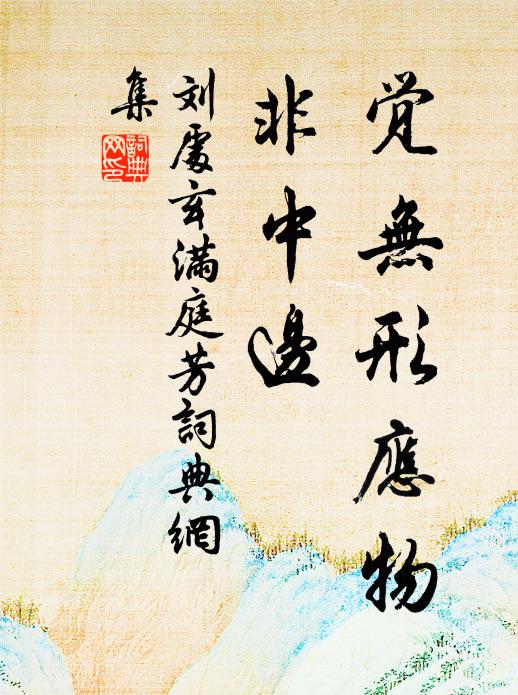 覚無形應物
非中邊
刘處玄滿庭芳詞典網
集
詞典
网印